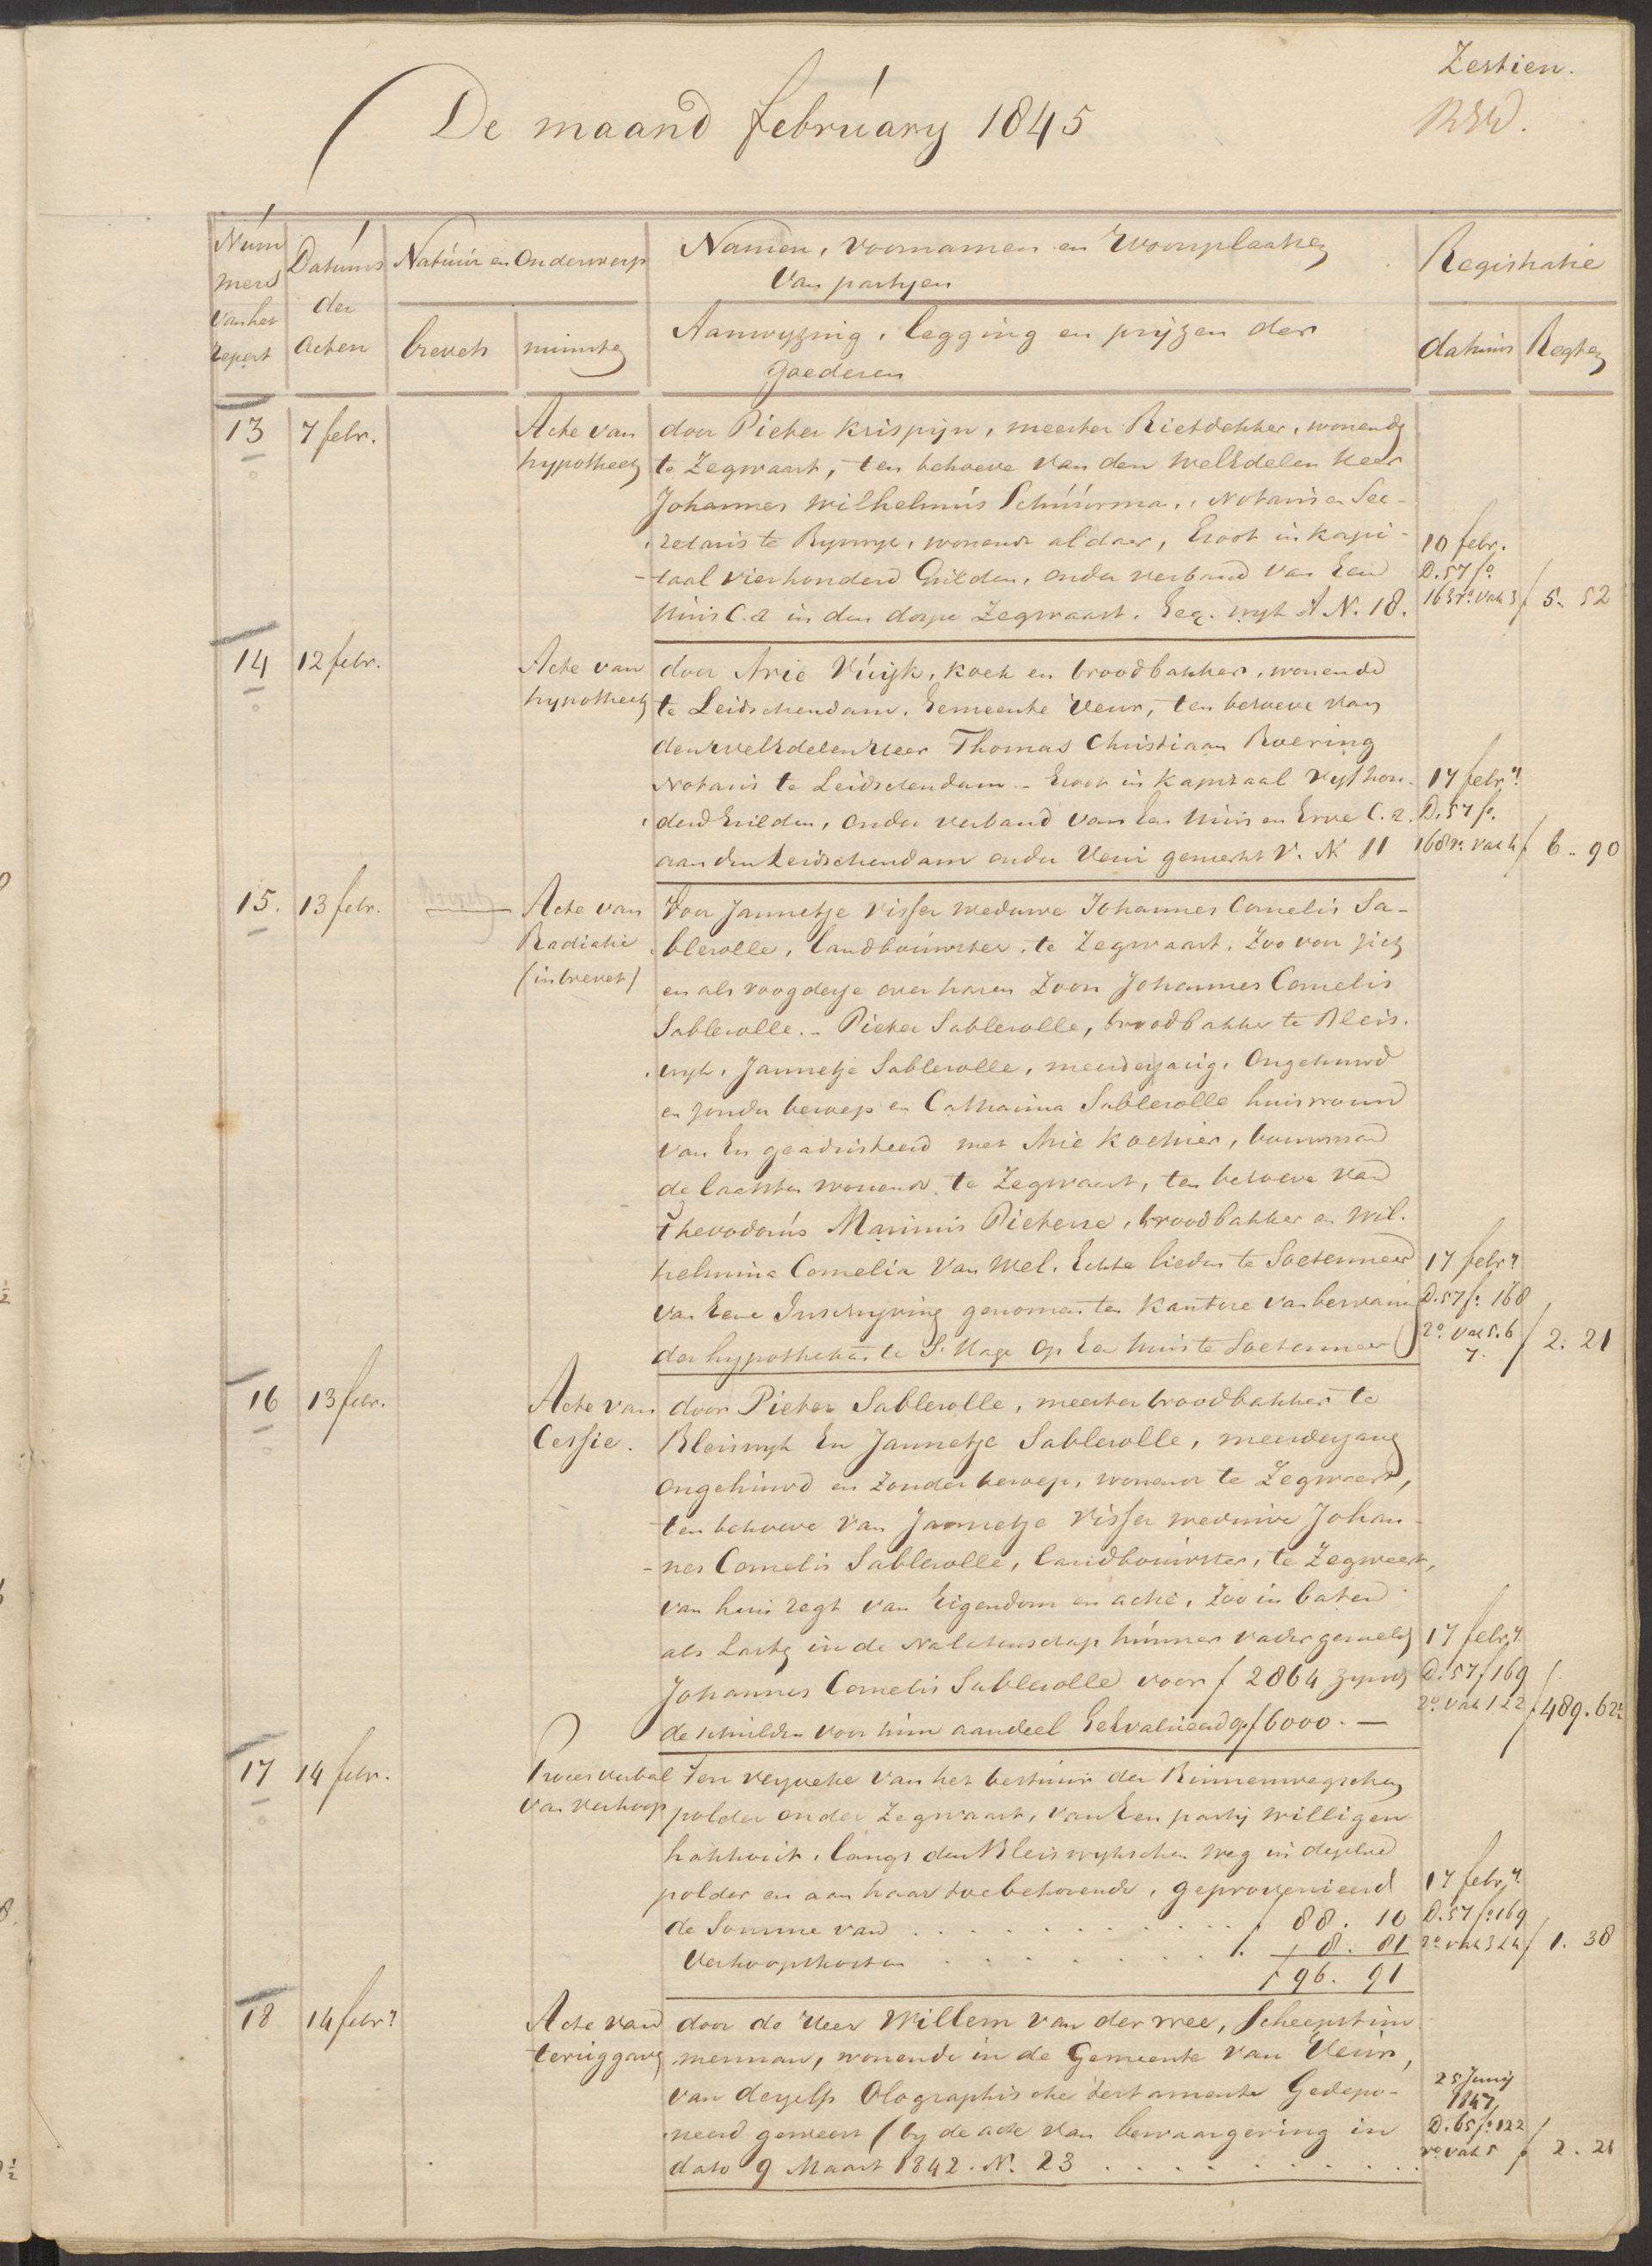 Zestien.
De maand february 1845
Num
mers
van het
repert
Datums
der
Acten
Natuur en Onderwerp
brevets
minuten
Namen, voornamen en Woonplaatsen
Van partyen
Aanwyzing, legging en pryzen der
goederen
Registratie
datums
Regten
13
7 febr.
Acte van
hypotheek
door Pieter Krispijn, meester Rietdekker, wonende
te Zegwaart, ten behoeve van den WelEdelen Heer
Johannes Wilhelmus Schuurman, Notaris en Sec-
retaris te Rijnwijk, wonende aldaar, Groot in kapi-
-taal vierhonderd Guilden, onder verband van Een
Huis C.a in den dorpe Zegwaart. Geq. wyk A N. 18.
10 febr.
D. 57 fo
163 ro vak 3
f 5. 52
14
12 febr.
Acte van
hypotheek
door Arie Vuijk, koek en broodbakker, wonende
te Leidschendam, Gemeente Veur, ten behoeve van
den WelEdelen Heer Thomas Christiaan Roering
Notaris te Leidschendam - Groot in kapitaal vyfhon-
derd Guilden, onder verband van Een Huis en Erve C.a.
aan den Leidschendam onder Veur gemerkt V. N 11
17 febr.
D. 57 fo.
168 ro. vak 4
f 6.. 90
15.
13 febr.
Acte van
Radiatie
(in brevet)
Door Jannetje Visser weduwe Johannes Cornelis Sa-
blerolle, landbouwster, te Zegwaart, Zoo voor zich
en als voogdesse over haren Zoon Johannes Cornelis
Sablerolle. - Pieter Sablerolle, broodbakker te Bleis-
wyk, Jannetje Sablerolle, meerderjarig, Ongehuwd
en zonder beroep en Catharina Sablerolle huisvrouw
van En geadsisteerd met Arie Koehier, bouwman
de laatsten wonende te Zegwaart, ten behoeve van
Theodorus Marinus Pieterse, broodbakker en Wil-
helmina Cornelia Van Wel, Echte lieden te Soetermeer
van Eene Inschryving genomen ten kantore van bewaring
der hypotheken te S. Hage op Een huis te Soetermeer
17 febr.
D. 57 fo. 168
2o. vak 5.6
7.
f 2. 21
16
13 febr.
Acte van
Cessie.
door Pieter Sablerolle, meester broodbakker te
Bleiswyk En Jannetje Sablerolle, meerderjarig
ongehuwd en zonder beroep, wonende te Zegwaart,
ten behoeve van Jannetje Visser weduwe Johan-
-nes Cornelis Sablerolle, landbouwster, te Zegwaart,
van hun regt van Eigendom en actie, Zoo in baten
als Lasten in de Nalatenschap hunner vader gemeld
Johannes Cornelis Sablerolle voor f 2864 zynde
de schulden voor hun aandeel Geëvalueerd op f 6000. -
17 febr.
D. 57 f 169
2o vak 1 & 2
f 489. 62½
17
14 febr.
Proces verbal
van Verkoop
Ten verzoeke van het bestuur der Binnenwegschen
polder onder Zegwaart, van Een party willigen
hakhout, langs den Bleiswykschen weg in dezelve
polder en aan haar toebehorende, geprovenieerd
de Somme van . . . . . . . . . f 88. 10
Verkoopkosten . . . . . . . . . f 8. 81
f 96. 91
17 febr.
D. 57 fo. 169
2o vak 3 & 4
f 1. 38
18
14 febr.
Acte van
teruggave
door de Heer Willem van der wee, Scheepstim-
merman, wonende in de Gemeente van Veur,
van deszelfs Olographische testamente Gedepo-
neerd geweest (by de acte van bewaargeving in
dato 9 Maart 1842. N. 23 . . . . . . . . .
25 Juny
1847
D. 65 fo. 122
ro vak 5
f 2. 21